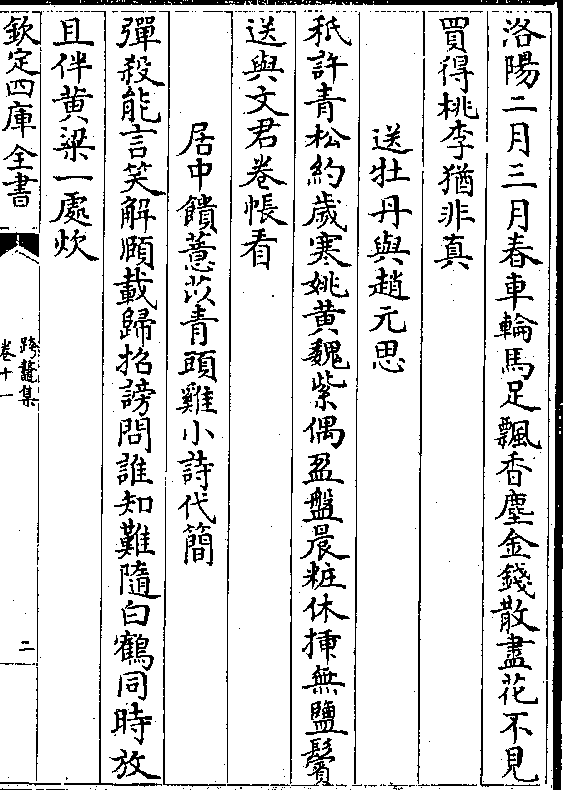 洛陽二月三月春車輪馬足飄香塵金錢散盡花不見
買得桃李猶非真
送牡丹與趙元思
秖許青松約歲寒姚黄魏紫偶盈盤晨粧休揷無鹽鬢
送與文君卷帳看
居中饋薏苡青頭雞小詩代簡
彈殺能言笑解頤載歸招謗問誰知難隨白鶴同時放
且伴黄粱一處炊
欽定四庫全書
跨鼇集
卷十一
二